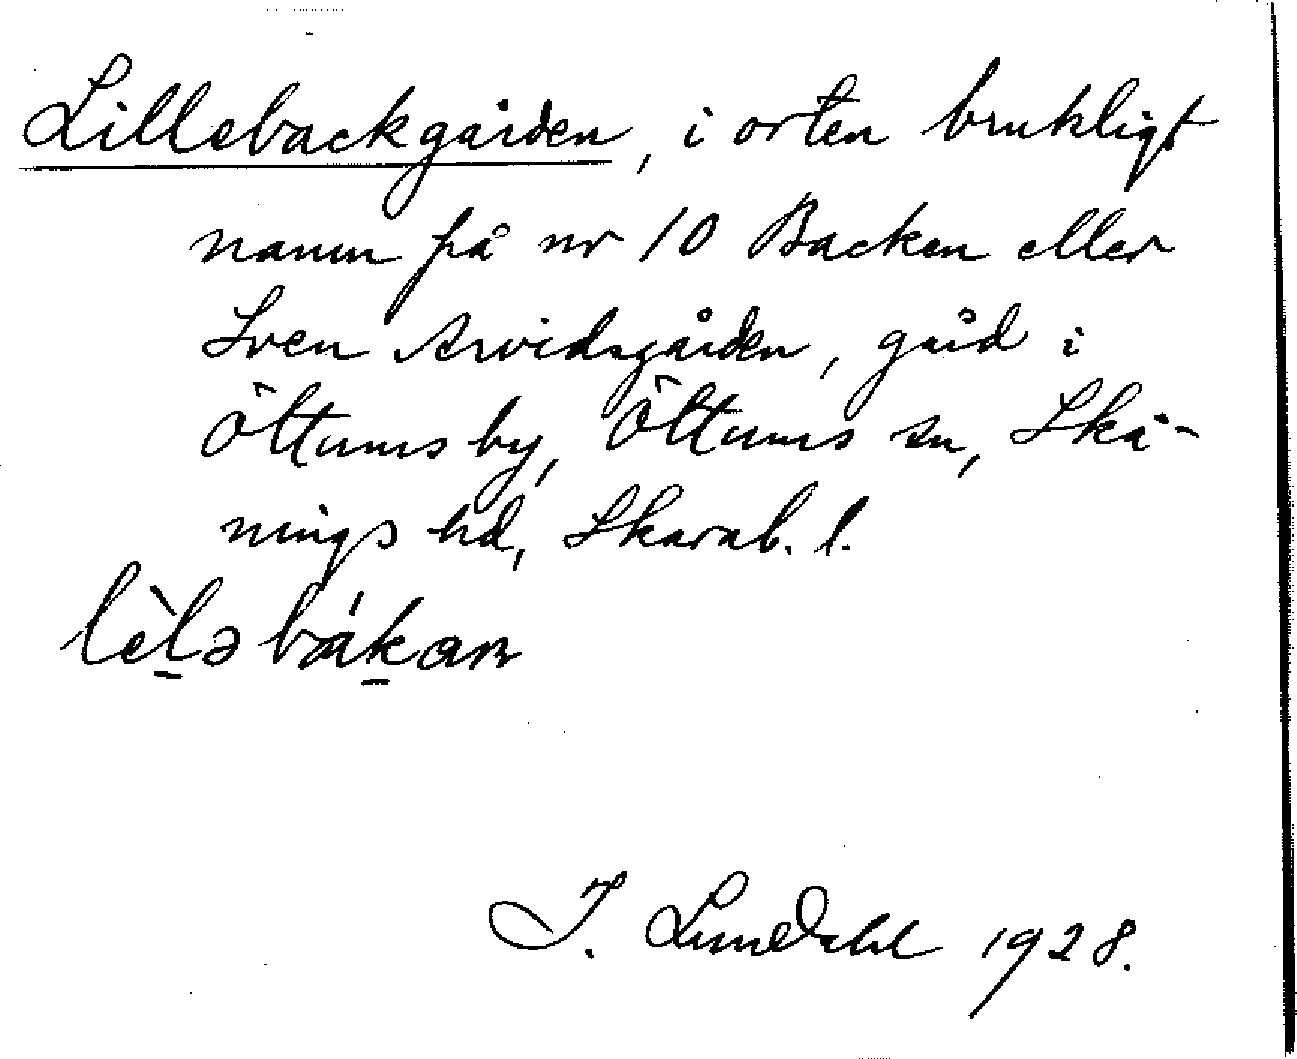 Lillebackgården, i orten brukligt
namn på nr 10 Backen eller
Sven Arvidsgården, gård i
Öttums by, Öttums sn, Skå-
nings hd, Skarab. l.
lèlə bákan
I. Lundahl 1928.